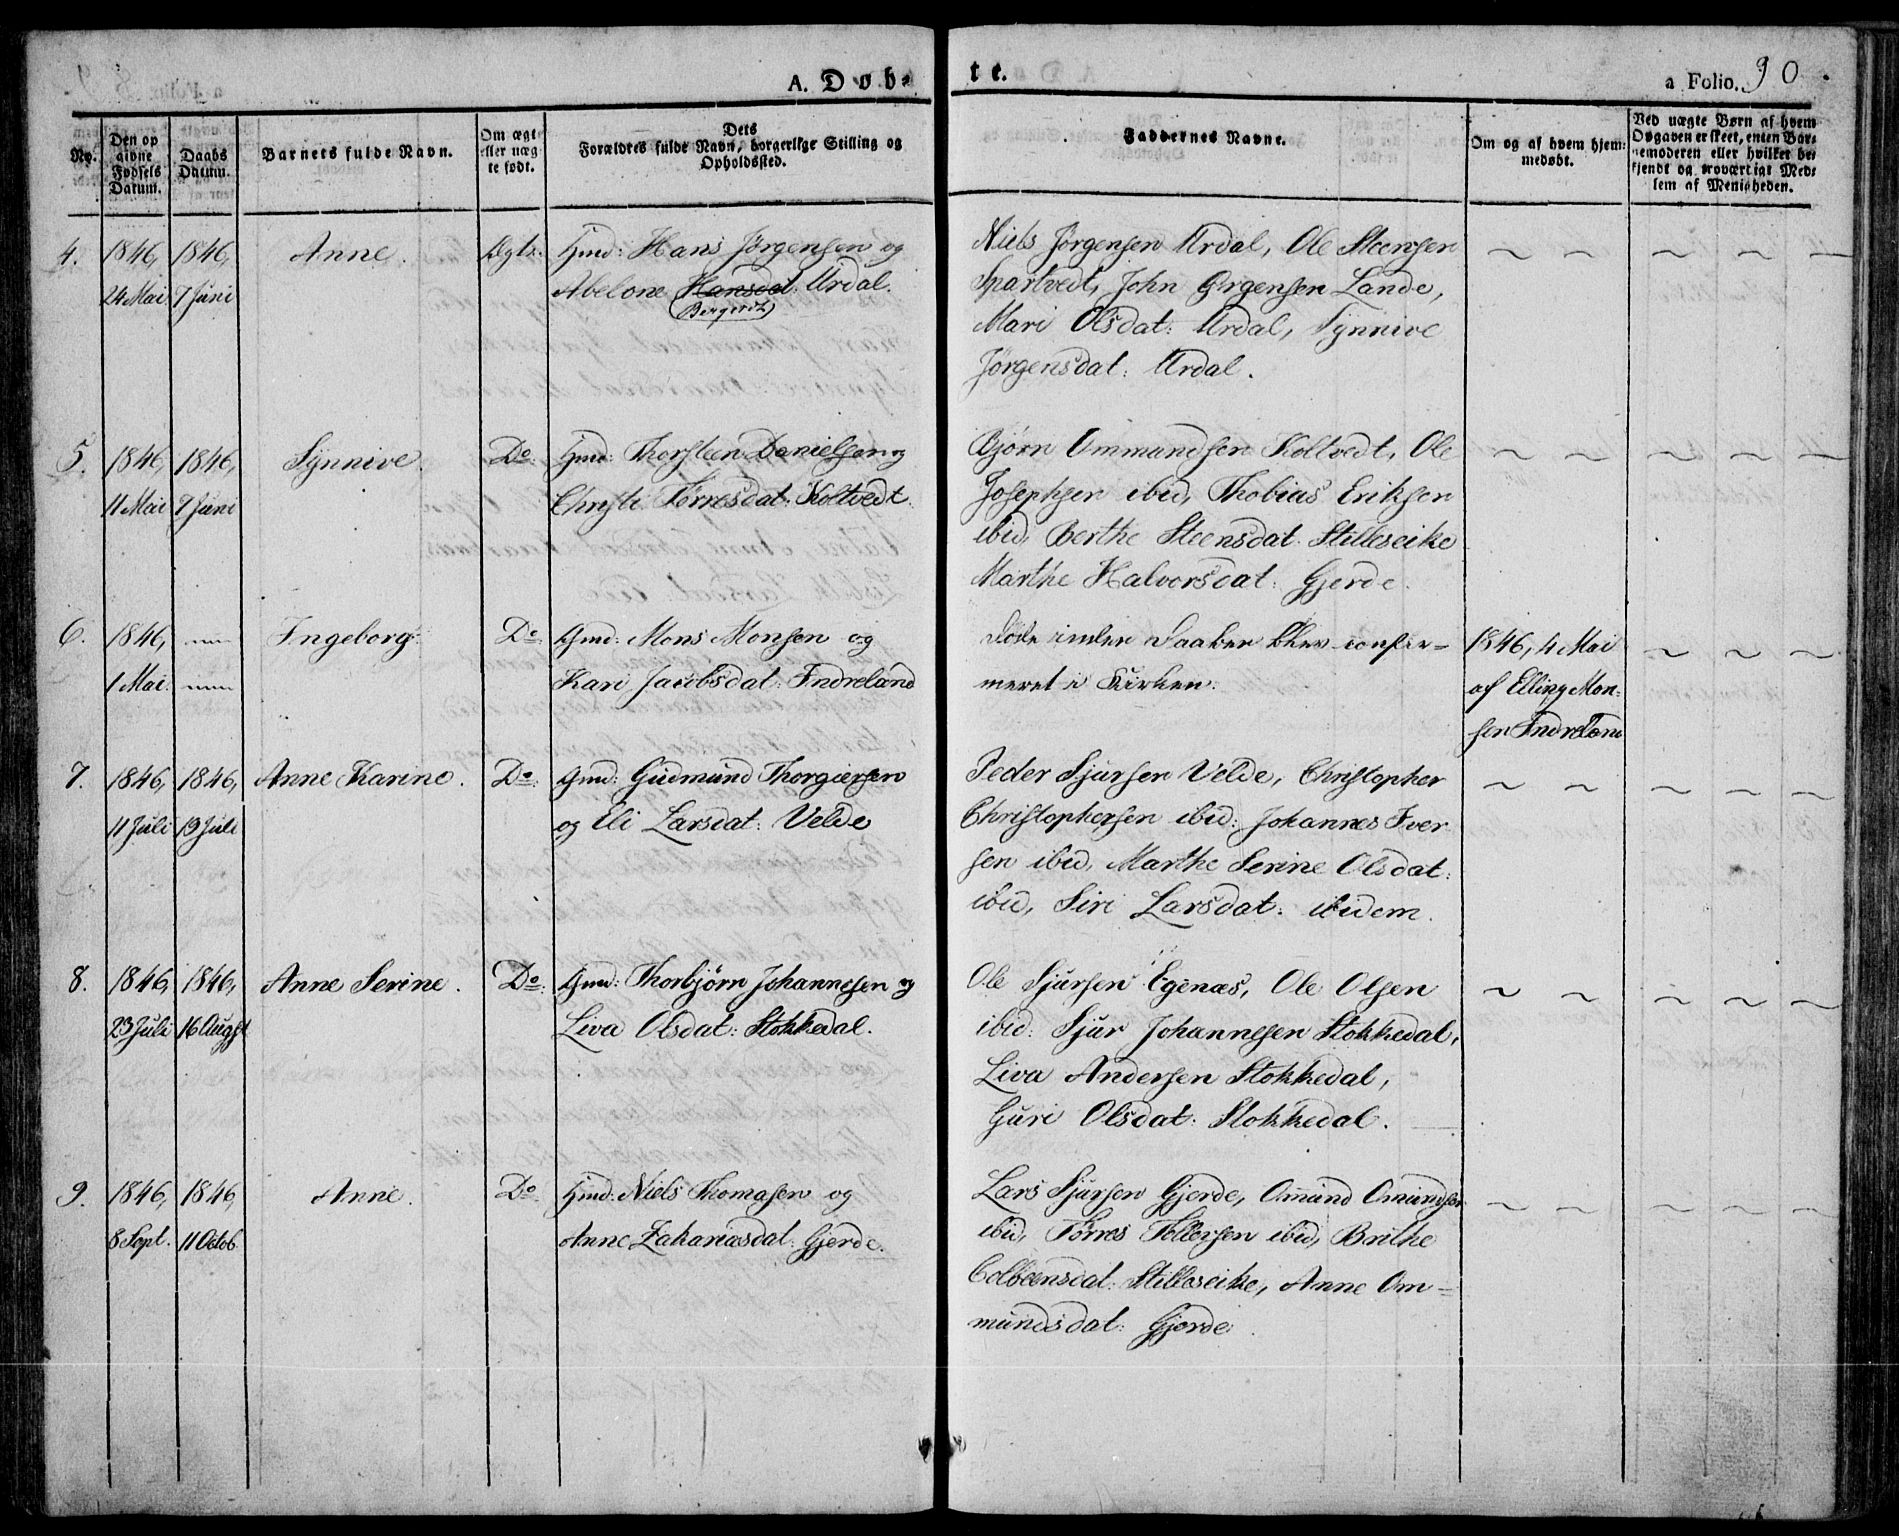 A. Døb-
te.
a Folio. 90.
No.
Den op
givne
Fødsels
Datum.
Daabs
Datum.
Barnets fulde Navn.
Om ægt
eller uæg
te født.
Dets
Forældres fulde Navn, borgerlige Stilling og
Opholdssted.
Faddernes Navne.
Om og af hvem hjem-
medøbt.
Ved uægte Børn af hvem
Opgaven er skeet, enten Bar-
nemoderen eller hvilket be-
kjendt og troværdigt Med-
lem af Menigheden.
4. 1846, 1846, Anne. Ægte. Gmd: Hans Jørgensen og
24 Mai 7 Juni Abelone Hansdat: Urdal.
Niels Jørgensen Urdal, Ole Steensen
Spartvedt, John Gregersen Lande,
Mari Olsdat: Urdal, Synnive
Jørgensdat: Urdal.
5. 1846, 1846, Synnive. Do. Gmd: Thorsteen Danielsen og
11 Mai 7 Juni Christi Tørresdat: Koltvedt
Bjørn Ommundsen Koltvedt, Ole
Josephsen ibid, Thobias Eriksen
ibid, Berthe Steensdat: Stilleseike
Marthe Halvorsdat: Gjerde.
6. 1846, Ingeborg. Do. Gmd: Mons Monsen og
1 Mai. Kari Jacobsdat: Indreland
Døde inden Daaben blev confir-
meret i Kirken.
1846, 4 Mai
af Elling Mon-
sen Indreland
7. 1846, 1846, Anne Karine. Do. Gmd: Gudmund Thorgiersen
11 Juli 19 Juli og Eli Larsdat: Velde
Peder Sjursen Velde, Christopher
Christophersen ibid: Johannes Iver
sen ibid, Marthe Serine Olsdat:
ibid, Siri Larsdat: ibidem.
8. 1846, 1846, Anne Serine. Do. Gmd: Thorbjørn Johannesen og
23 Juli 16 Augst Liva Olsdat: Stokkedal.
Ole Sjursen Egenæs, Ole Olsen
ibid: Sjur Johannesen Stokkedal,
Liva Andersen Stokkedal,
Guri Olsdat: Stokkedal.
9. 1846, 1846, Anne. Do. Gmd: Niels Thomasen og
8 Sept. 11 Octob. Anne Zakariasdat: Gjerde.
Lars Sjursen Gjerde, Omund Omundsen
ibid, Tørres Tollefsen ibid, Brithe
Colbeensdat: Stilleseike, Anne Om-
mundsdat: Gjerde.